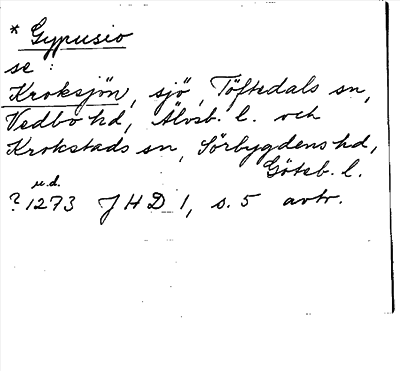 * Gypusio
se :
Kroksjön, sjö, Töftedals sn,
Vedbo hd, Älvsb. l. och
Krokstads sn, Sörbygdens hd,
Göteb. l.
u.d.
? 1273 JHD 1, s. 5 avtr.